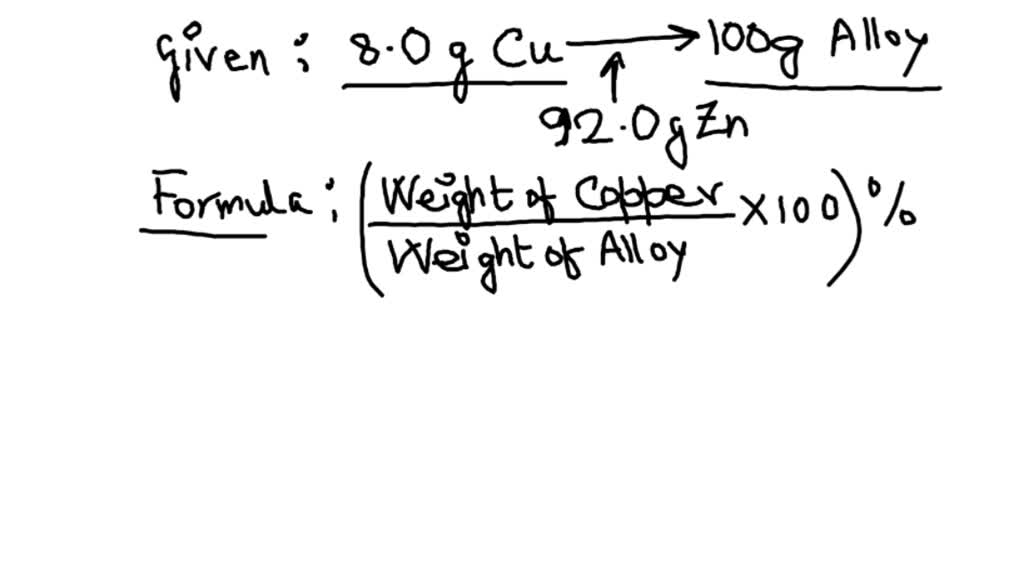 Given : 8.0 g Cu → 100g Alloy
↑
92.0g Zn
Formula : (Weight of Copper / Weight of Alloy X 100) %